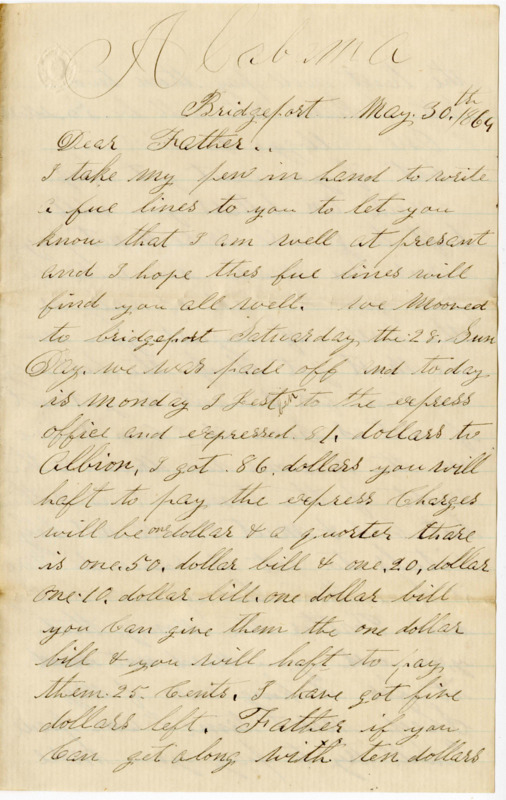 Alabama
Bridgeport May. 30.th 1864
Dear Father..
I take my pen in hand to write
a fue lines to you to let you
know that I am well at presant
and I hope thes fue lines will
find you all well. we Mooved
to bridgeport Saturday the 28. Sun
Day. we was pade off nd to day
is Monday I Jest ben to the express
office and expressed 81. dollars to
Albion, I got .86. dollars you will
haft to pay the express Charges
will be one dollar & a quorter thare
is one.50. dollar bill & one.20. dollar
one.10. dollar bill. one dollar bill
you Can give them the one dollar
bill & you will haft to pay
them 25. Cents. I have got five
dollars left. Father if you
Can get along with ten dollars